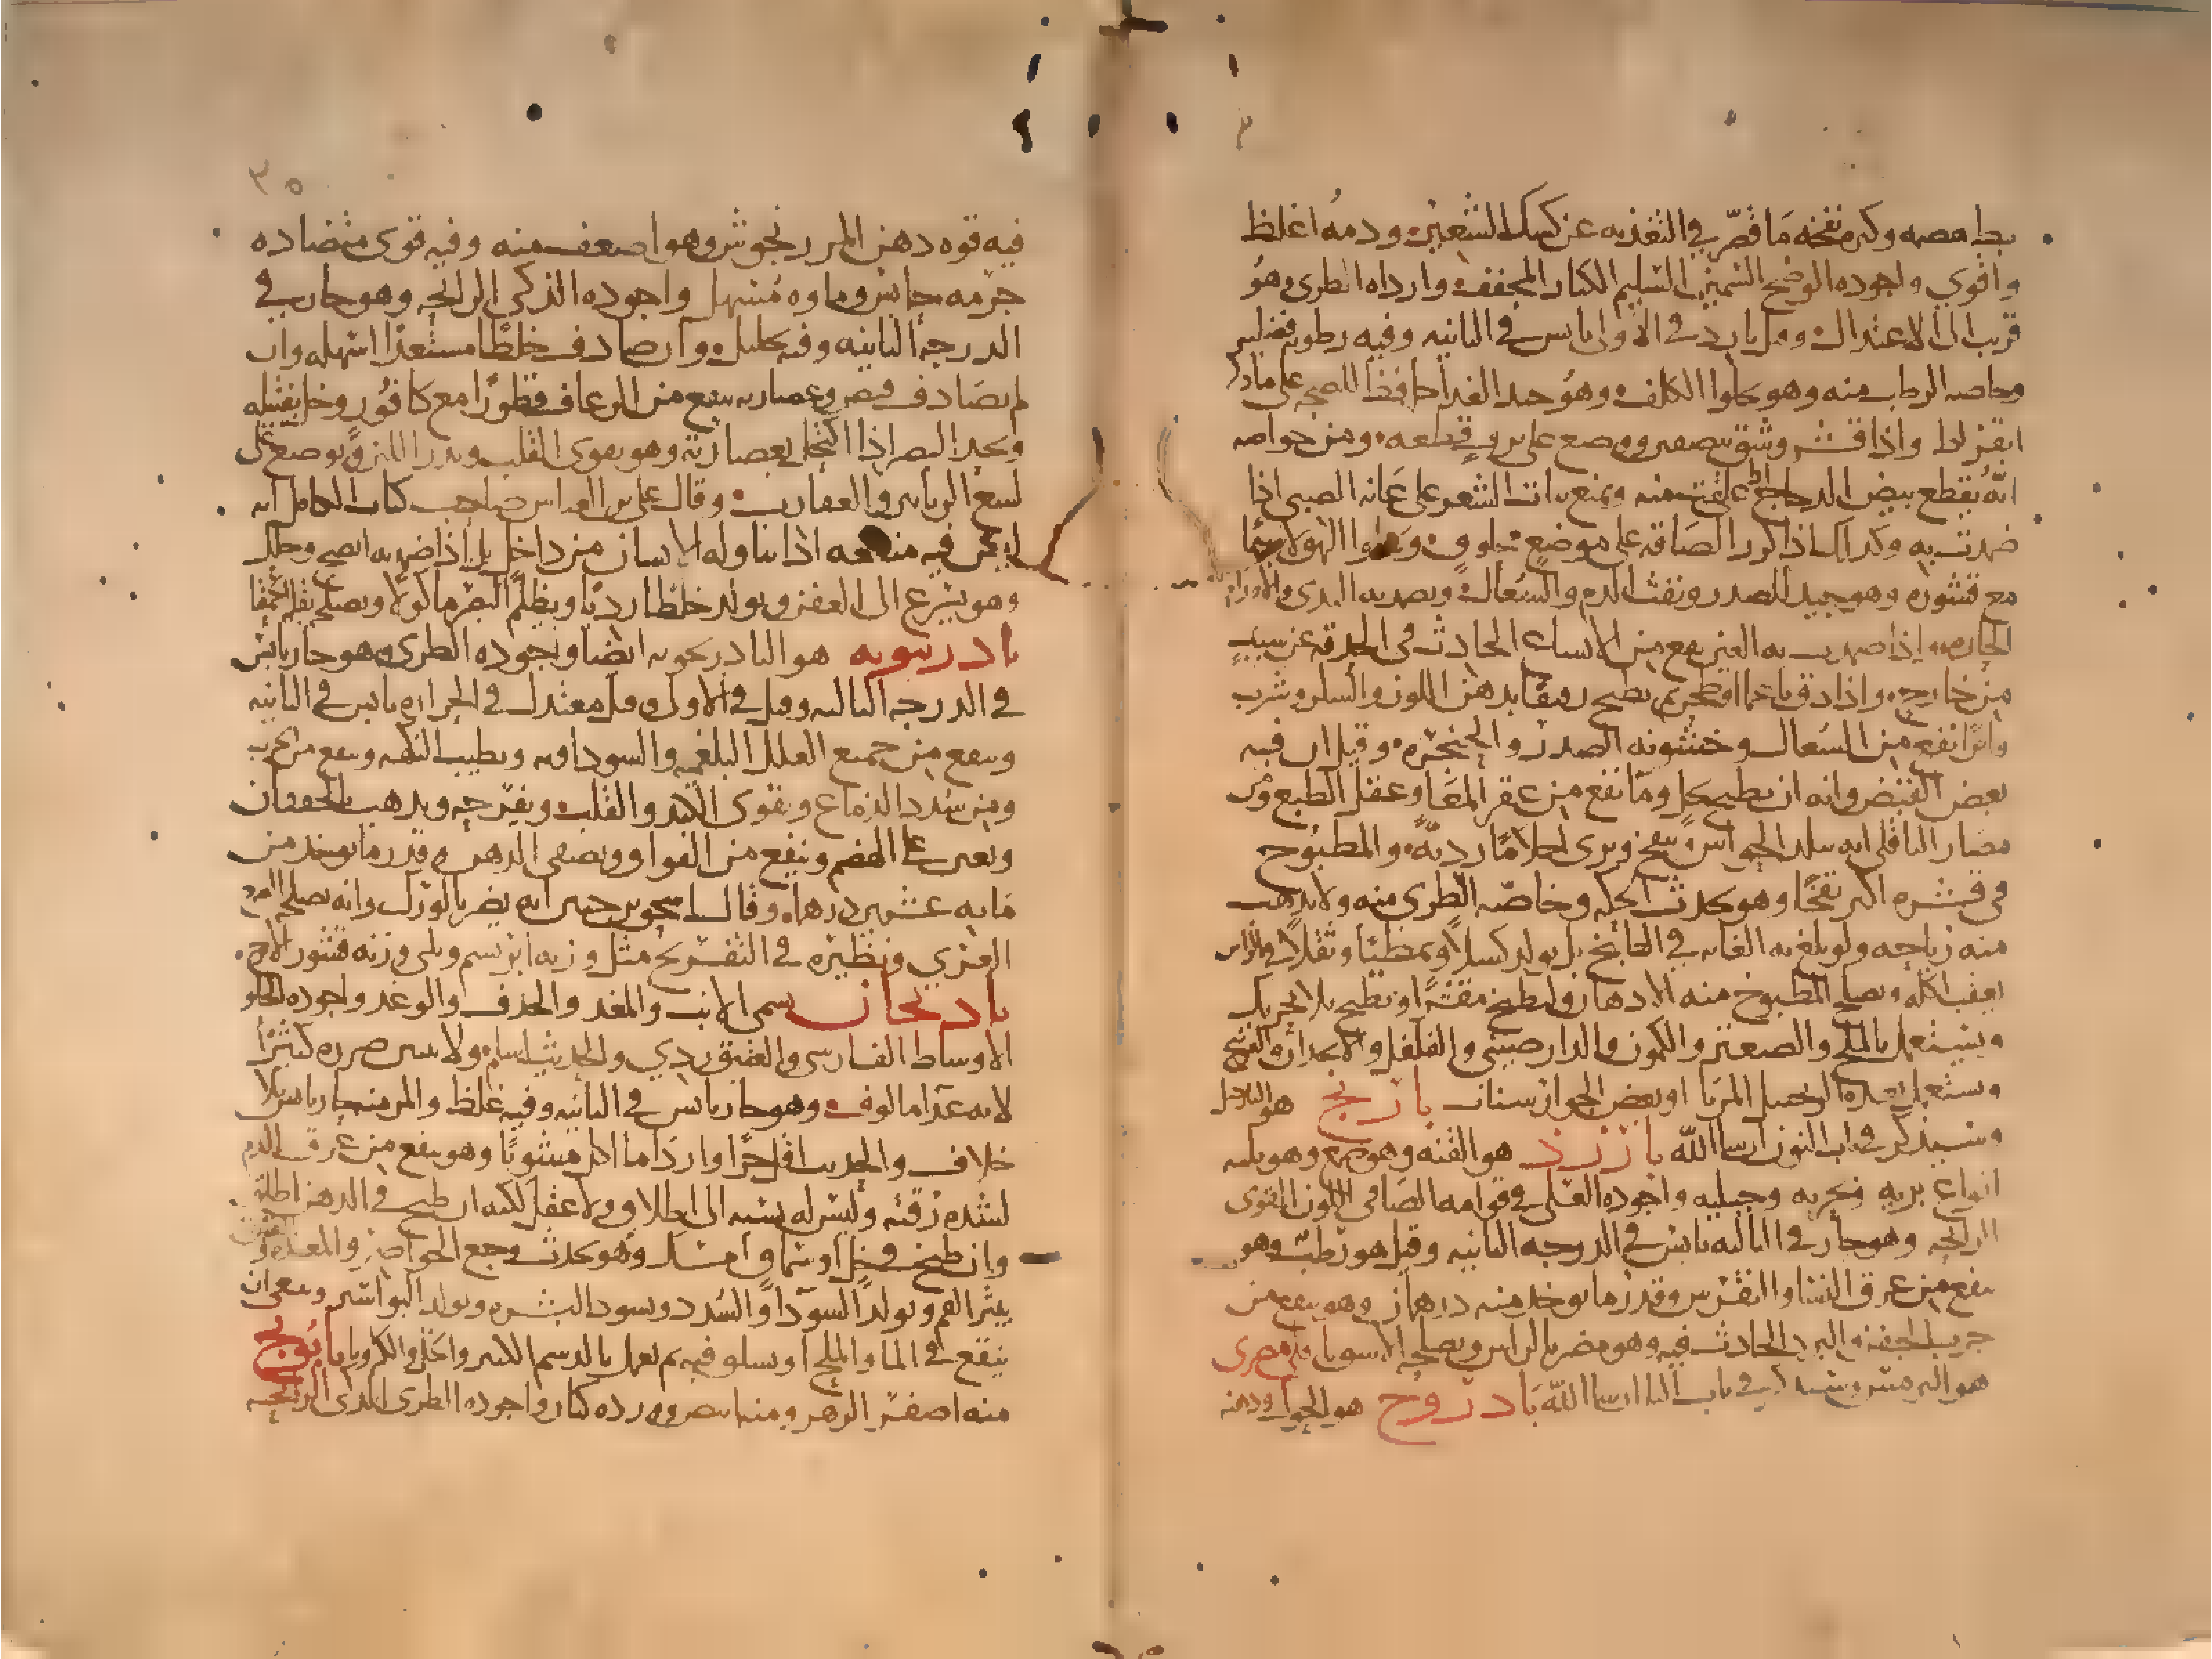 بطا هضمه وكثرة نفخه ما قصّر في التغذيه عن كشك الشعير ودمه اغلظ
واقوى واجوده الوضح السمين السليم الكبار المجفف وارداه الطرى وهو
قريب الى الاعتدال وقيل بارد في الاولى يابس في الثانيه وفيه رطوبه فضليه
وخاصه الرطب منه وهو يجلوا الكلف وهو جيد الغدا حافظ للصحه على ما ذكر
ابقراط واذا قشر وشق بنصفين ووضع على نزف قطعه ومن خواصه
انه يقطع بيض الدجاج اذا علفت منه ويمنع نبات الشعر على عانه الصبى اذا
ضمدت به وكذلك اذا كرر الصاقه على موضع محلوق ويجلوا البهق لا سيما
مع قشوره وهو جيد للصدر ونفث الدم والسعال ويضمد به الثدى والاورام
الحاره واذا ضمدت به العين نفع من الاتساع الحادث في الحدقه عن سبب
من خارج واذا دق ناعما وطبخ بدهن اللوز والسكر وشرب
نفع من السعال وخشونه الصدر والحنجره وقيل ان فيه
بعض القبض وانه ان طبخ بخل وما نفع من عقر المعا وعقل الطبع ومن
مضار الباقلى انه يبلد الحواس وينفخ ويرى احلاما رديّه والمطبوخ
في قشره اكثر نفخا وهو يحدث الحكه وخاصّه الطرى منه ولا يذهب
منه رياحه ولو بلغ به الغايه في الطابخ بل يولد كسلا وتمطيا وثقلا في الراس
يعقب اكله ويصلح المطبوخ منه الادهان وليطبخ مقشرا او يطبخ بلا تحريك
ويستعمل بالملح والصعتر والكمون والدارصينى والفلفل والانجدان
ويستعمل بعده الزنجبيل المربا او بعض الجوارشنات بارنج هو النارجيل
وسيذكر في باب النون ان شا الله بارزد هو القنه وهو صمغ وهو ثلثه
انواع بريه وبحريه وجبليه واجوده العسلى في قوامه الصافى اللون القوى
الرايحه وهو حار في الثالثه يابس في الدرجه الثانيه وقيل هو رطب وهو
ينفع من عرق النسا والنقرس وقدر ما يوخذ منه درهمان وهو ينفع من
جرب الجفن والبرد الحادث فيه وهو مضر بالراس ويصلحه باقلى مصرى
هو الترمس وسيذكر في باب التا ان شا الله باذروج هو الحوك ودهنه
٣٥
فيه قوه دهن المرزنجوش وهو اضعف منه وفيه قوى متضاده
جرمه حابس وماوه مسهل واجوده الذكى الرايحه وهو حار في
الدرجه الثانيه وفيه تحليل وان صادف خلطا مستعدا اسهله وان
لم يصادف قبض وعصارته تنفع من الرعاف قطورا مع كافور وخل بفتيله
ويحد البصر اذا اكتحل بعصارته وهو يقوى القلب ويدر اللبن ويوضع على
لسع الزنابير والعقارب وقال على بن العباس صاحب كتاب الكامل انه
ليس فيه منفعه اذا تناوله الانسان من داخل بل اذا ضمد به انضج وحلل
وهو يسرع الى العفن ويولد خلطا رديا ويظلم البصر ماكولا ويصلحه بقله الحمقا
بادرنبويه هو البادرنجويه ايضا واجوده الطرى وهو حار يابس
في الدرجه الثالثه وقيل في الاولى وقيل معتدل في الحراره يابس في الثانيه
وينفع من جميع العلل البلغميه والسوداويه ويطيب النكهه وينفع من الجرب
ومن سدد الدماغ ويقوى الكبد والقلب ويفرحه ويذهب بالخفقان
ويعين على الهضم وينفع من الفواق ويصفى الذهن وقدر ما يوخذ من
مايه عشرين درهما وقال اسحق بن حنين انه يضر بالورك وانه يصلحه الصمغ
العربى ونظيره في التفريح مثل وزنه ابريسم وثلثى وزنه قشور الاترج
باذنجان يسمى الانب والمغد والحدق والوغد واجوده الحلو
الاوساط الفارسى والعتيق ردى والحديث اسلم ولا يبين ضرره كثيرا
لانه غدا مالوف وهو حار يابس في الثانيه وفيه غلظ والمر منه حار يابس بلا
خلاف والحديث اقل حرا وارداه ما اكل مشويا وهو ينفع من عرق الدم
لشده زرقته وليس له نسبه الى اطلاق ولا عقل لكنه ان طبخ في الدهن اطلق
وان طبخ في خل او سماق امسك وهو يحدث وجع الخواصر والمعده
يبثر الفم ويولد السودا والسدد ويسود البشره ويولد البواسير وينبغى ان
ينقع في الما والملح او يسلق فيه ثم يعمل بالدسم الكثير والخل والكرويا بابونج
منه اصفر الزهر ومنه ابيض ورده كبار واجوده الطرى الذكى الرايحه